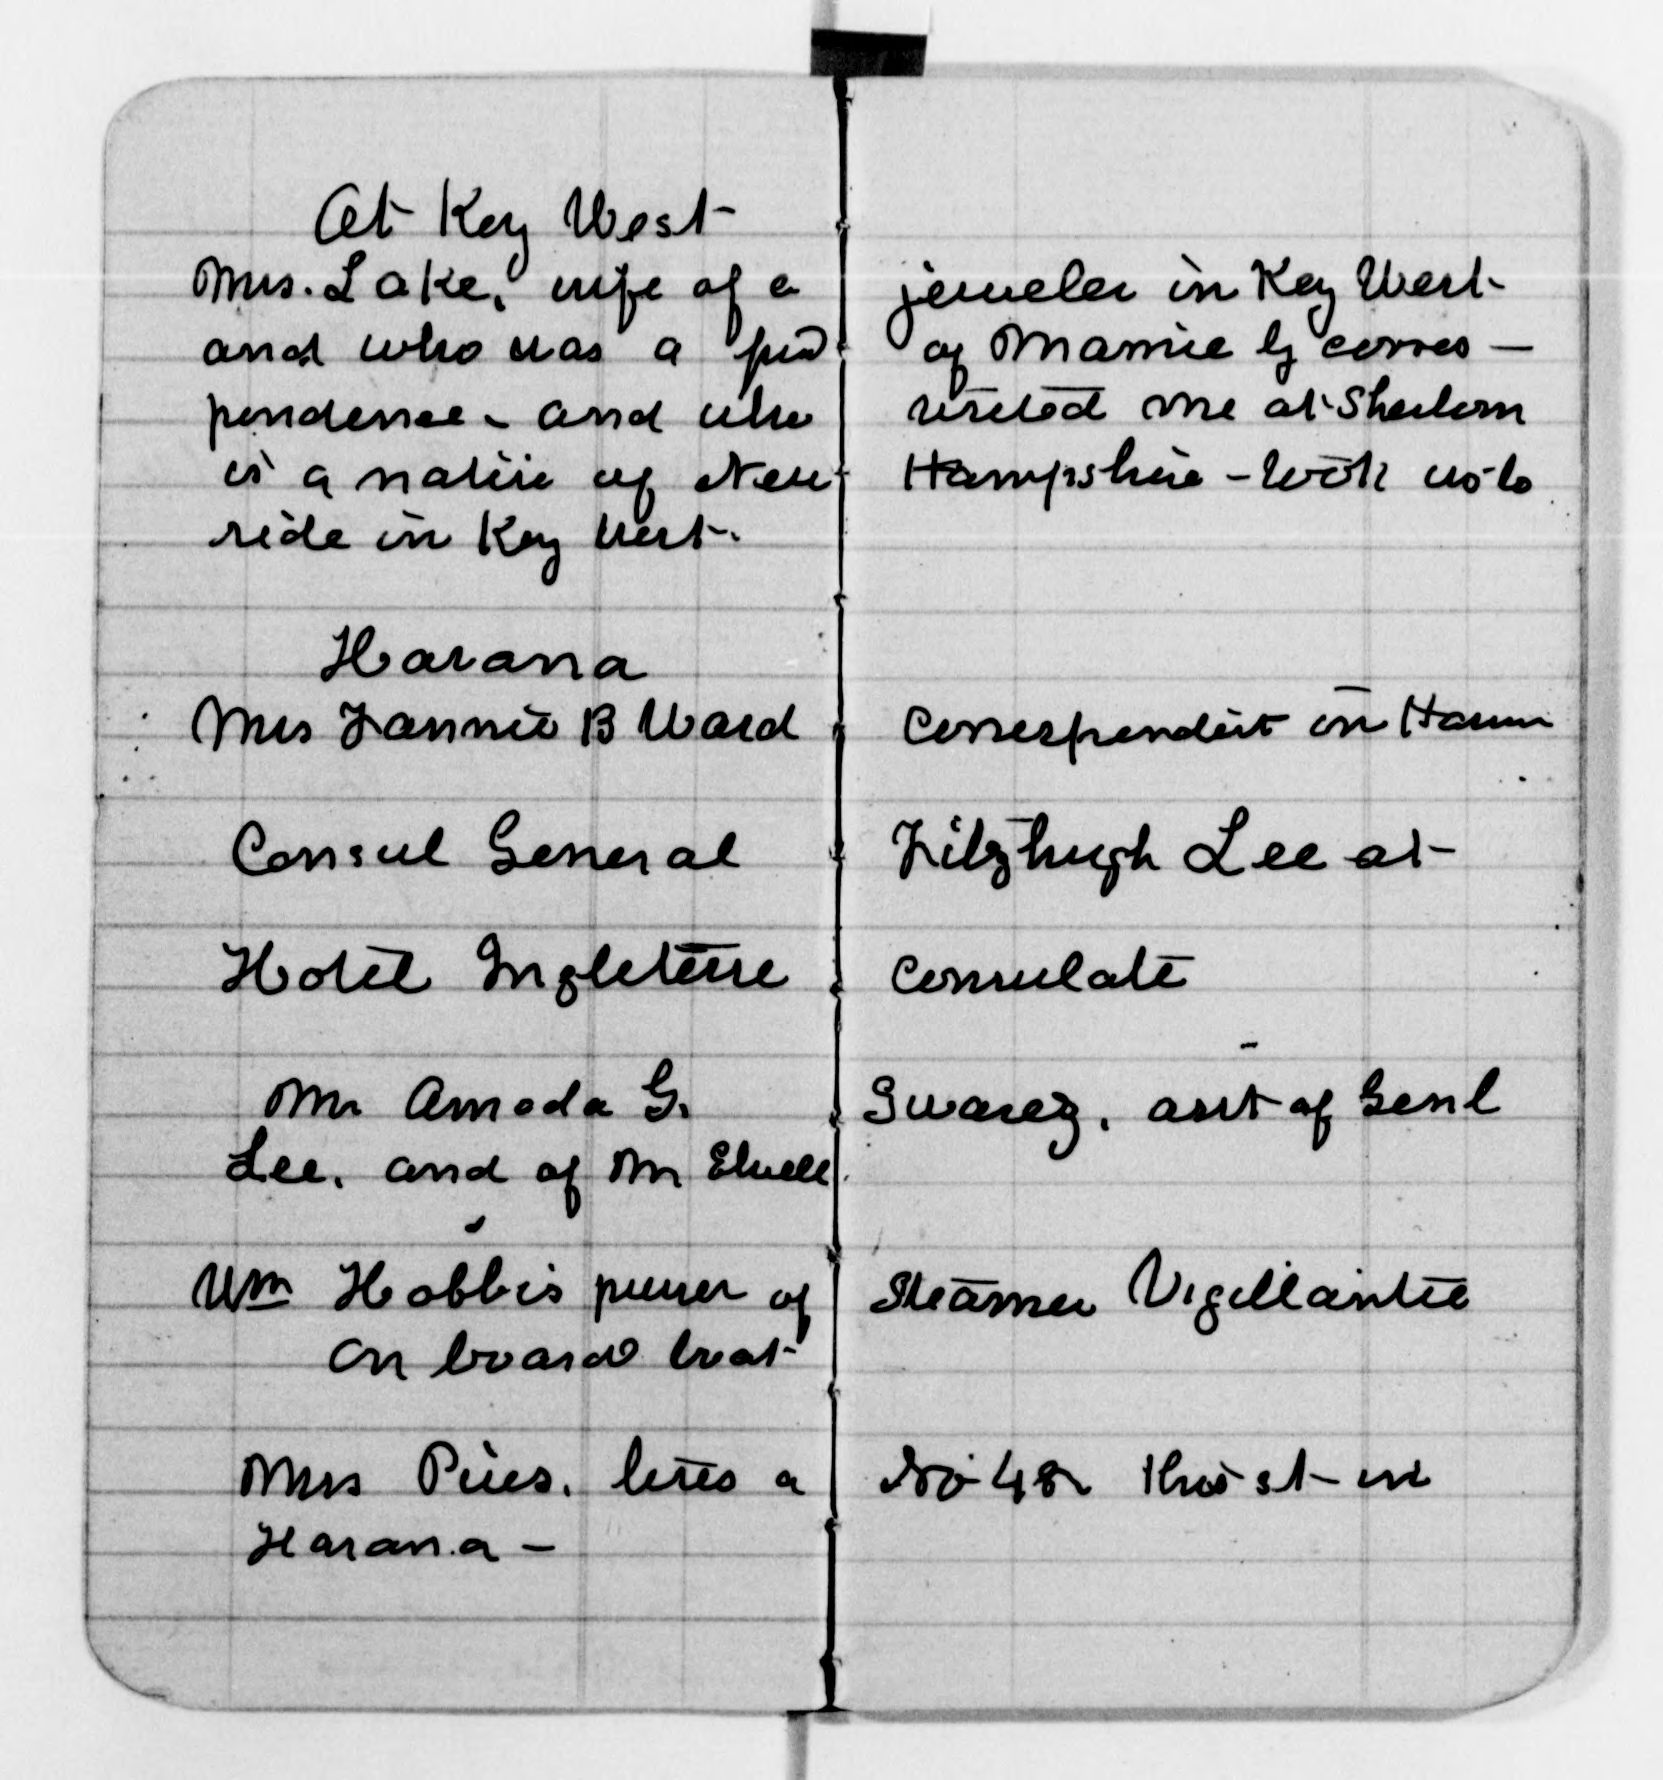 At Key West
Mrs. Lake, wife of a jeweler in Key West
and who was a frd of Mamie by corres—
pondence - and who visited me at Sherborn
is a native of New Hampshire - took us to
ride in Key West.
Havana
Mrs Fannie B Ward Correspondent in Havana
Consul General Fitzhugh Lee at
Hotel Ingleterre Consulate
Mr Amoda G. Suarez, asst of Genl
Lee, and of Mr Elwell
Wm Hobbis purser of Steamer Vigillantie
on board boat
Mrs Pires. lives a No 48 st in
Havana -